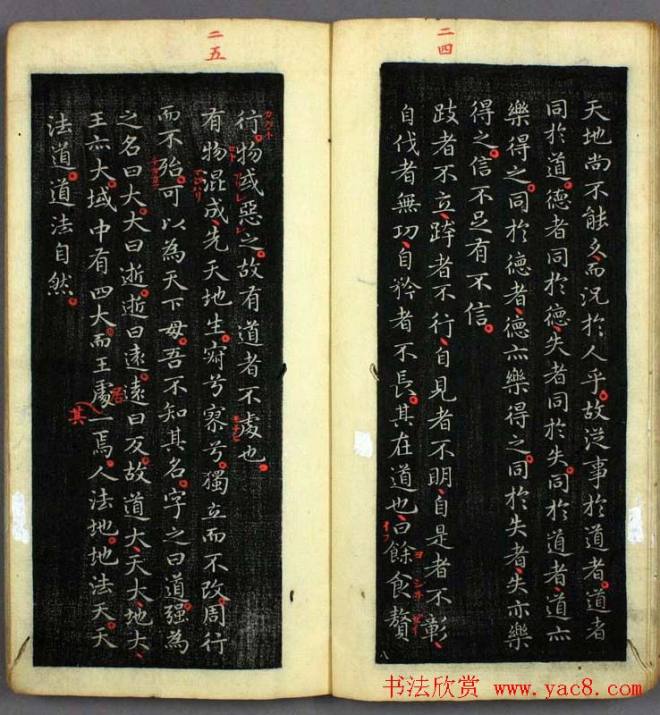 二四
天地尚不能久而况於人乎故従事於道者道者
同於道德者同於德失者同於失同於道者道亦
樂得之同於德者德亦樂得之同於失者失亦樂
得之信不足有不信
跂者不立跨者不行自見者不明自是者不彰
自伐者無功自矜者不長其在道也曰餘食贅
二五
行物或惡之故有道者不處也
有物混成先天地生寂兮寥兮獨立而不改周行
而不殆可以為天下母吾不知其名字之曰道强為
之名曰大大曰逝逝曰遠遠曰反故道大天大地大
王亦大域中有四大而王處一焉人法地地法天天
法道道法自然
居
其
书法欣赏 www.yac8.com